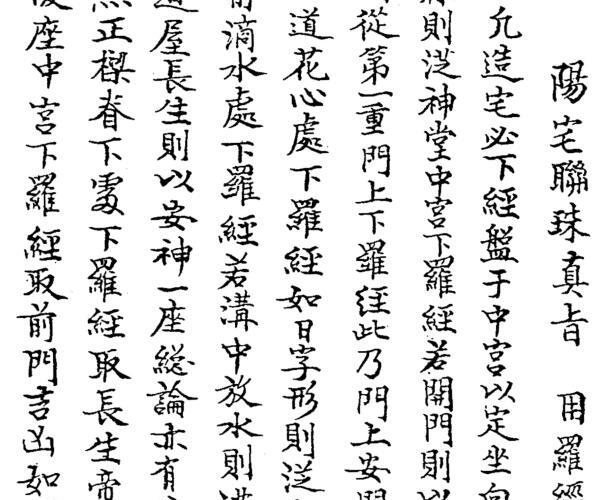 陽宅聯珠真旨　用羅經
凢造宅必下經盤于中宮以定坐向
則從神堂中宮下羅經若開門則以
從第一重門上下羅経此乃門上安門
道花心處下羅經如日字形則從
滴水處下羅經若溝中放水則溝
屋長生則以安神一座総論亦有
正樑脊下處下羅經取長生帝
座中宮下羅經取前門吉凶如